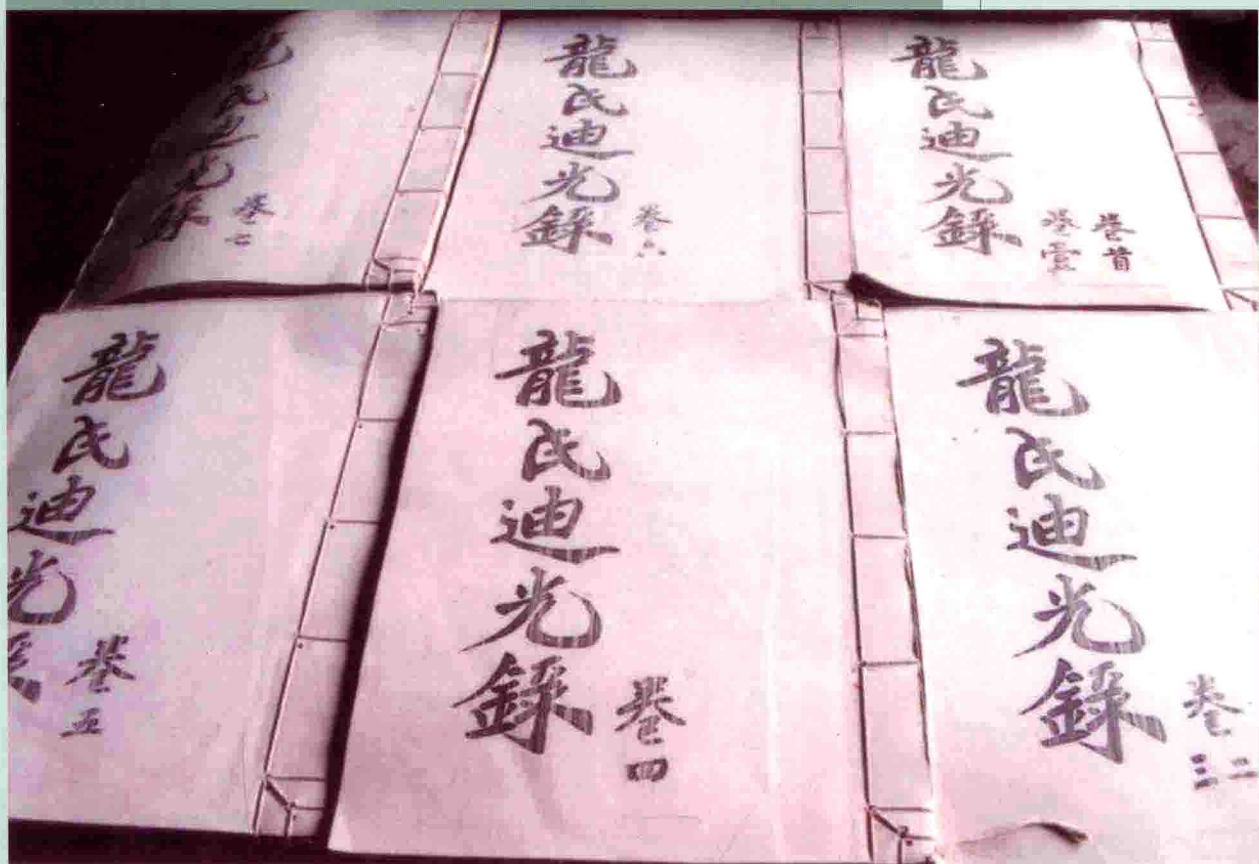 龍氏迪光錄
卷首
卷壹
龍氏迪光錄
卷六
龍氏迪光錄
卷七
龍氏迪光錄
卷二三
龍氏迪光錄
卷四
龍氏迪光錄
卷五